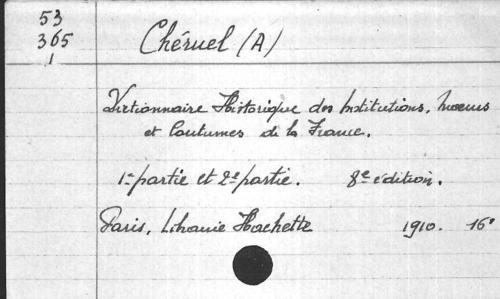 53
365
1
Chéruel (A)
Dictionnaire Historique des Institutions, moeurs
et Coutumes de la France.
1e partie et 2e partie. 8e édition.
Paris, Librairie Hachette 1910. 16°